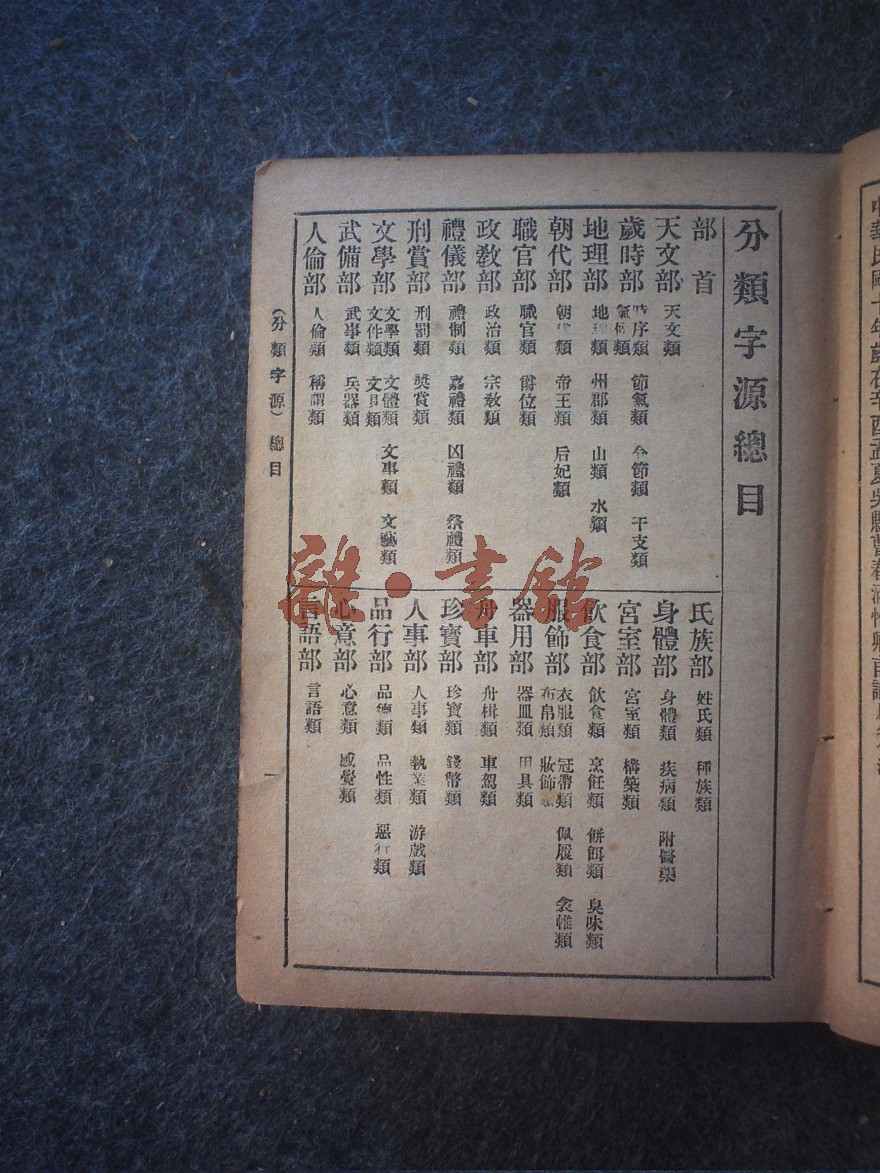 分類字源總目
部首
天文部 天文類
歲時部 時序類 節氣類 令節類 干支類 氣候類
地理部 地理類 州郡類 山類 水類
朝代部 朝代類 帝王類 后妃類
職官部 職官類 爵位類
政教部 政治類 宗教類
禮儀部 禮制類 嘉禮類 凶禮類 祭禮類
刑賞部 刑罰類 獎賞類
文學部 文學類 文體類 文事類 文藝類 文件類 文具類
武備部 武事類 兵器類
人倫部 人倫類 稱謂類
氏族部 姓氏類 種族類
身體部 身體類 疾病類 附醫藥
宮室部 宮室類 構築類
飲食部 飲食類 烹飪類 餅餌類 臭味類
服飾部 衣服類 冠帶類 佩履類 衾帷類 布帛類 妝飾類
器用部 器皿類 用具類
舟車部 舟楫類 車駕類
珍寶部 珍寶類 錢幣類
人事部 人事類 執業類 游戲類
品行部 品德類 品性類 惡行類
心意部 心意類 感覺類
言語部 言語類
(分類字源) 總目
雜·書館
中華民國十年歲在辛酉孟夏吳縣曹春涵